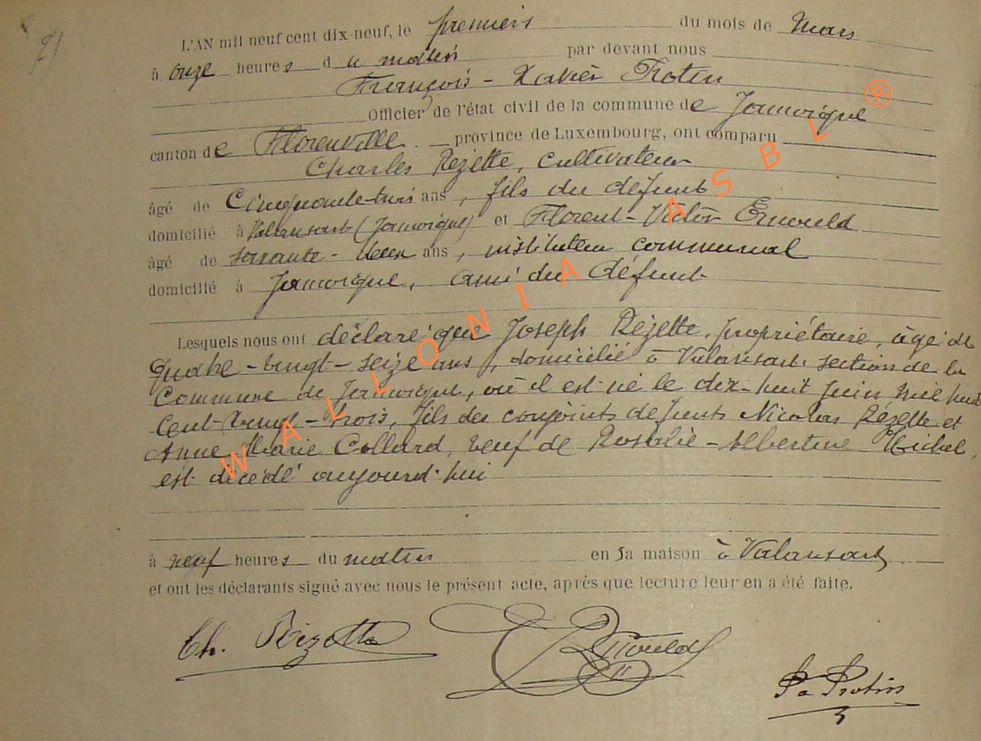 L'AN mil neuf cent dix-neuf, le premier du mois de Mars
à onze heures du matin par devant nous
François-Xavier
Officier de l'état civil de la commune de Jamoigne
canton de Florenville province de Luxembourg, ont comparu
Charles Rézette, cultivateur
âgé de Cinquante-trois ans, fils du défunt
domicilié à Valansart (Jamoigne) et Florent-Victor Ernould
âgé de soixante- ans, instituteur communal
domicilié à Jamoigne, ami du défunt
Lesquels nous ont déclaré que Joseph Rézette, propriétaire, âgé de
quatre-vingt-seize ans, domicilié à Valansart section de la
Commune de Jamoigne, où il est né le dix-huit Juin mil huit
Cent-vingt-trois, fils des conjoints défunts Nicolas Rézette et
Anne Marie Collard, veuf de Rosalie-Albertine Michel,
est décédé aujourd'hui
à neuf heures du matin en sa maison à Valansart
et ont les déclarants signé avec nous le présent acte, après que lecture leur en a été faite.
Ch. Rézette
Ernould
WALLONIA ASBL ®